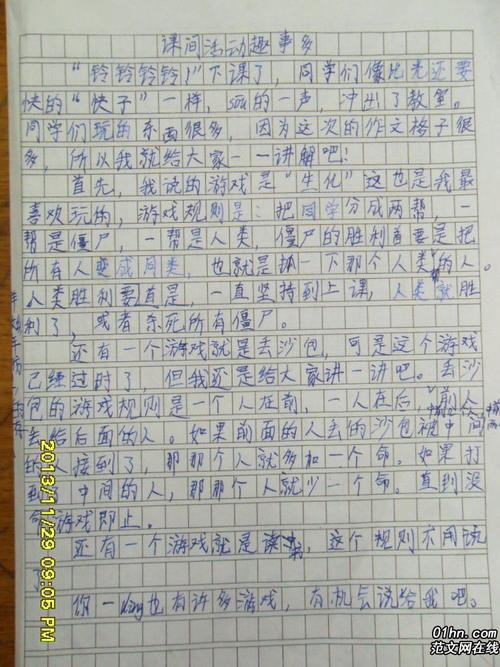 课间活动趣事多
“铃铃铃铃!”下课了,同学们像比光还要
快的“快子”一样,sou的一声,冲出了教室。
同学们玩的东西很多,因为这次的作文格子很
多,所以我就给大家一一讲解吧!
首先,我说的游戏是“生化”这也是我最
喜欢玩的,游戏规则是:把同学分成两帮,一
帮是僵尸,一帮是人类,僵尸的胜利首要是把
所有人变成同类,也就是抓一下那个人类的人。
人类胜利要首是,一直坚持到上课,人类就胜
利了,或者杀死所有僵尸。
还有一个游戏就是丢沙包,可是这个游戏
已经过时了,但我还是给大家讲一讲吧。丢沙
包的游戏规则是一个人在前,一人在后,前人
丢给后面的人。如果前面的人丢的沙包被中间
的人接到了,那那个人就多加一个命。如果打
到了中间的人,那那个人就少一个命。直到没
命游戏即止。
还有一个游戏就是读书,这个规则不用说
了
你一ding也有许多游戏,有机会说给我吧。
2013/11/29 09:05 PM
01hn.com
范文网在线